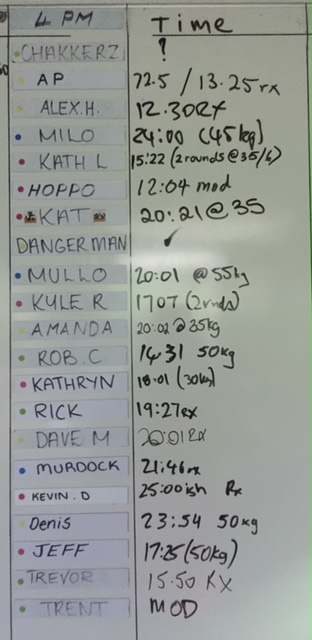 4 PM Time
CHAKKERZ !
AP 72.5 / 13.25rx
ALEX.H. 12.30RX
MILO 24:00 (45kg)
KATH L 15:22 (2rounds@35/6)
HOPPO 12:04 mod
KAT 20:21@35
DANGERMAN ✓
MULLO 20:01 @55kg
KYLE R 1707 (2rnds)
AMANDA 20:02@35kg
ROB.C 14,31 50kg
KATHRYN 18.01 (30kg)
RICK 19:27RX
DAVE M 20:01RX
MURDOCK 21:46rx
KEVIN.D 25:00ish Rx
Denis 23:54 50kg
JEFF 17:25(50kg)
TREVOR 15.50 RX
TRENT MOD